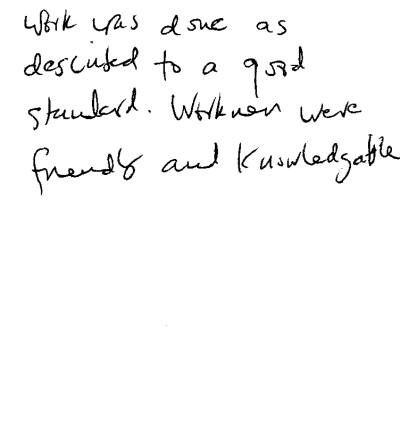 Work was done as
described to a good
standard. Workmen were
friendly and knowledgable